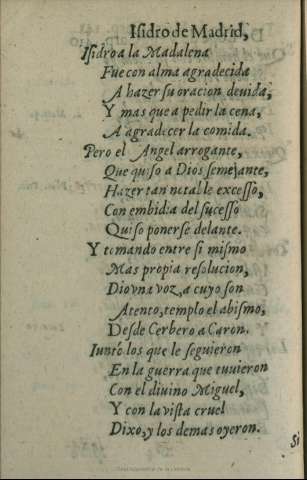 Isidro de Madrid,
Isidro a la Madalena
Fue con alma agradecida
A hazer su oracion deuida,
Y mas que a pedir la cena,
A agradecer la comida.
Pero el Angel arrogante,
Que quiso a Dios semejante,
Hazer tan notable excesso,
Con embidia del sucesso
Quiso ponerse delante.
Y tomando entre si mismo
Mas propia resolucion,
Dio vna voz, a cuyo son
Atento, templo el abismo,
Desde Cerbero a Caron.
Iuntò los que le seguieron
En la guerra que tuuieron
Con el diuino Miguel,
Y con la vista cruel
Dixo, y los demas oyeron.
Si